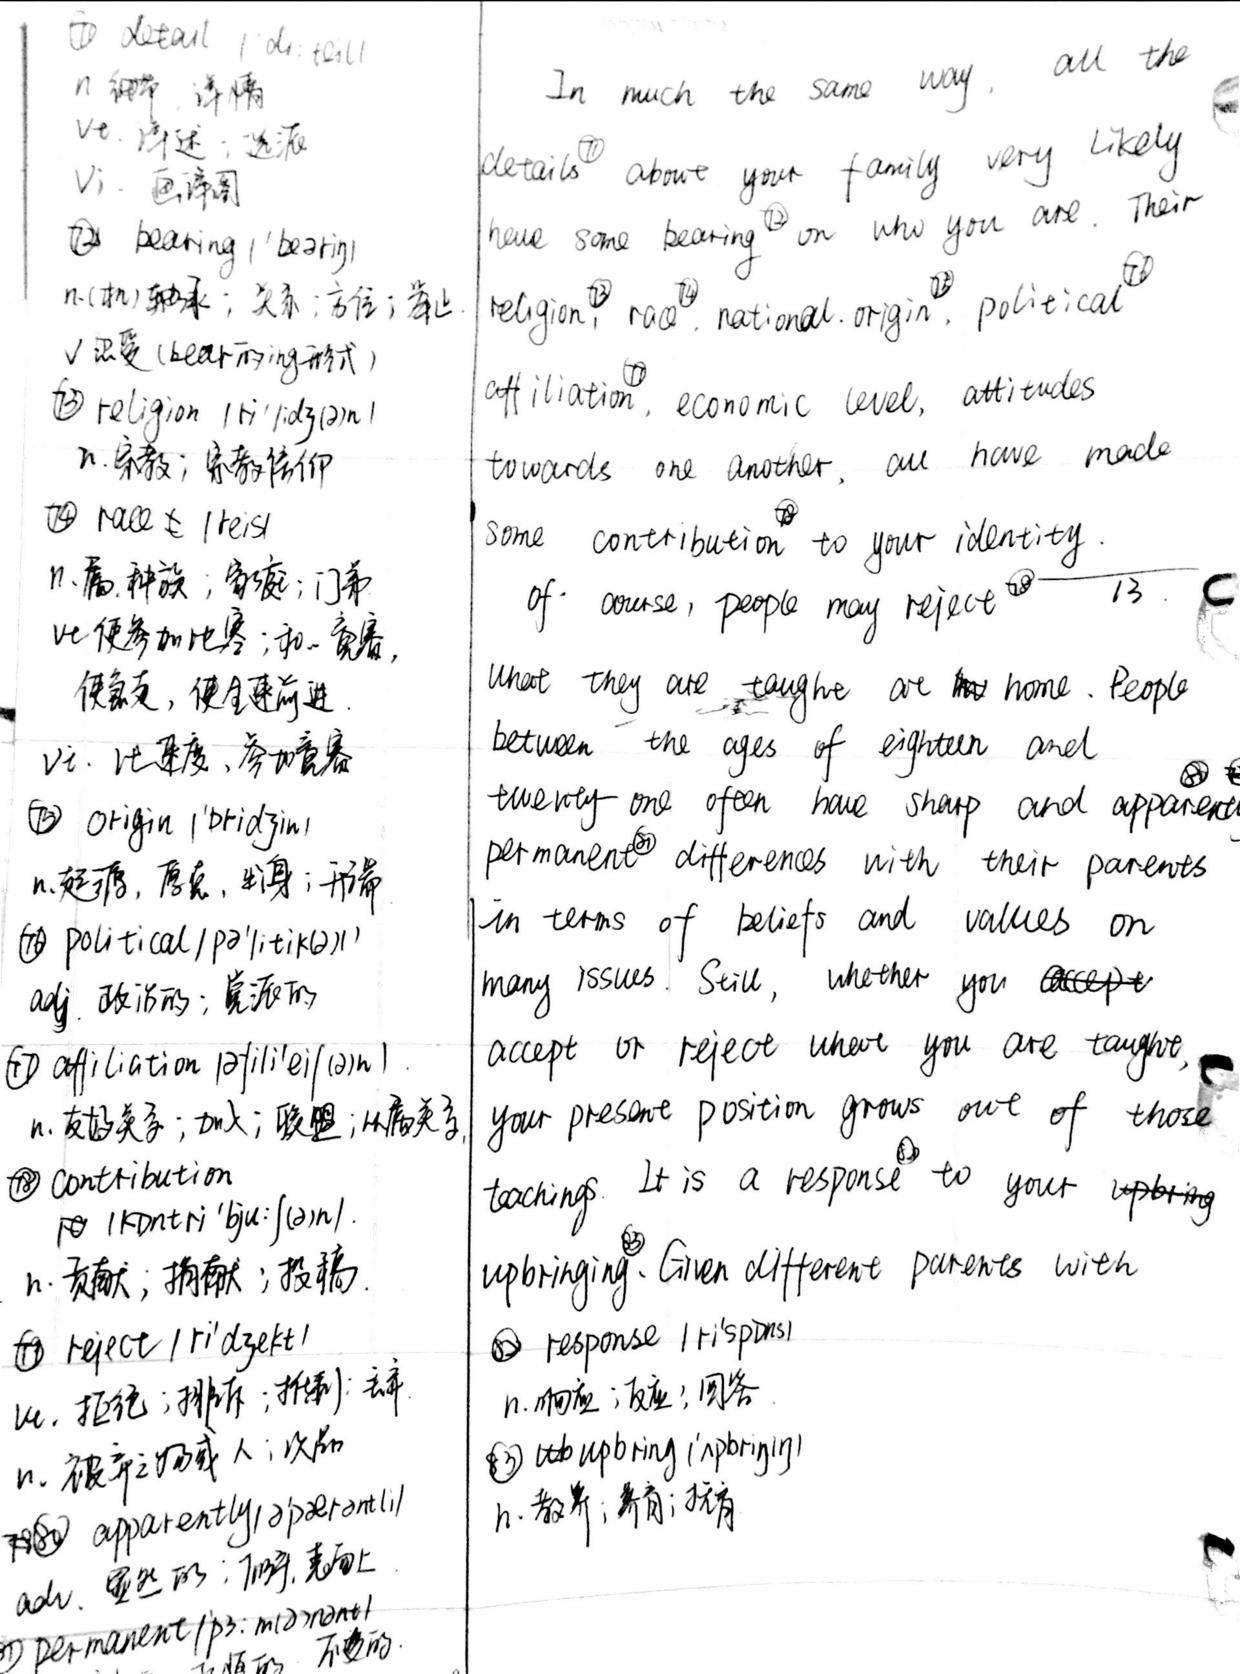 ⑦① detail /ˈdiːteil/
n 细节、详情
vt. 详述；选派
Vi. 画详图
⑦② bearing /ˈbeəriŋ/
n.(机)轴承；关系；方位；举止.
V 忍受（bear的ing形式）
⑦③ religion /riˈlidʒ(ə)n/
n. 宗教；宗教信仰
⑦④ race /reis/
n. 属,种族；家庭；门第
vt 使参加比赛；和..竞赛,
使急走，使全速前进.
Vi. 比速度、参加竞赛
⑦⑤ origin /ˈɒridʒin/
n.起源，原点、出身；开端
⑦⑥ political /pəˈlitik(ə)l/
adj. 政治的；党派的
⑦⑦ affiliation /əfiliˈeiʃ(ə)n/.
n. 友好关系；加入；联盟；从属关系,
⑦⑧ contribution
/kɒntriˈbjuːʃ(ə)n/.
n. 贡献；捐献；投稿.
⑦⑨ reject /riˈdʒekt/
vt. 拒绝；排斥；抵制；丢弃.
n. 被弃之物或人；次品
⑧⓪ apparently /əˈpærəntli/
adv. 显然的；似乎,表面上.
⑧① permanent /ˈpɜːm(ə)nənt/
不变的.
In much the same way, all the
details⑦① about your family very likely
have some bearing⑦② on who you are. Their
religion⑦③, race⑦④, national.origin⑦⑤, political⑦⑥
affiliation⑦⑦, economic level, attitudes
towards one another, all have made
some contribution⑦⑧ to your identity.
of. course, people may reject⑦⑨ 13.
what they are taught at home. People
between the ages of eighteen and
twenty-one often have sharp and apparently⑧⓪
permanent⑧① differences with their parents
in terms of beliefs and values on
many issues. Still, whether you accept
accept or reject what you are taught,
your present position grows out of those
teachings. It is a response⑧② to your upbring
upbringing⑧③. Given different parents with
⑧② response /riˈspɒns/
n. 响应；反应；回答.
⑧③ upbring /ˈʌpbriŋiŋ/
n. 教养；养育；抚育